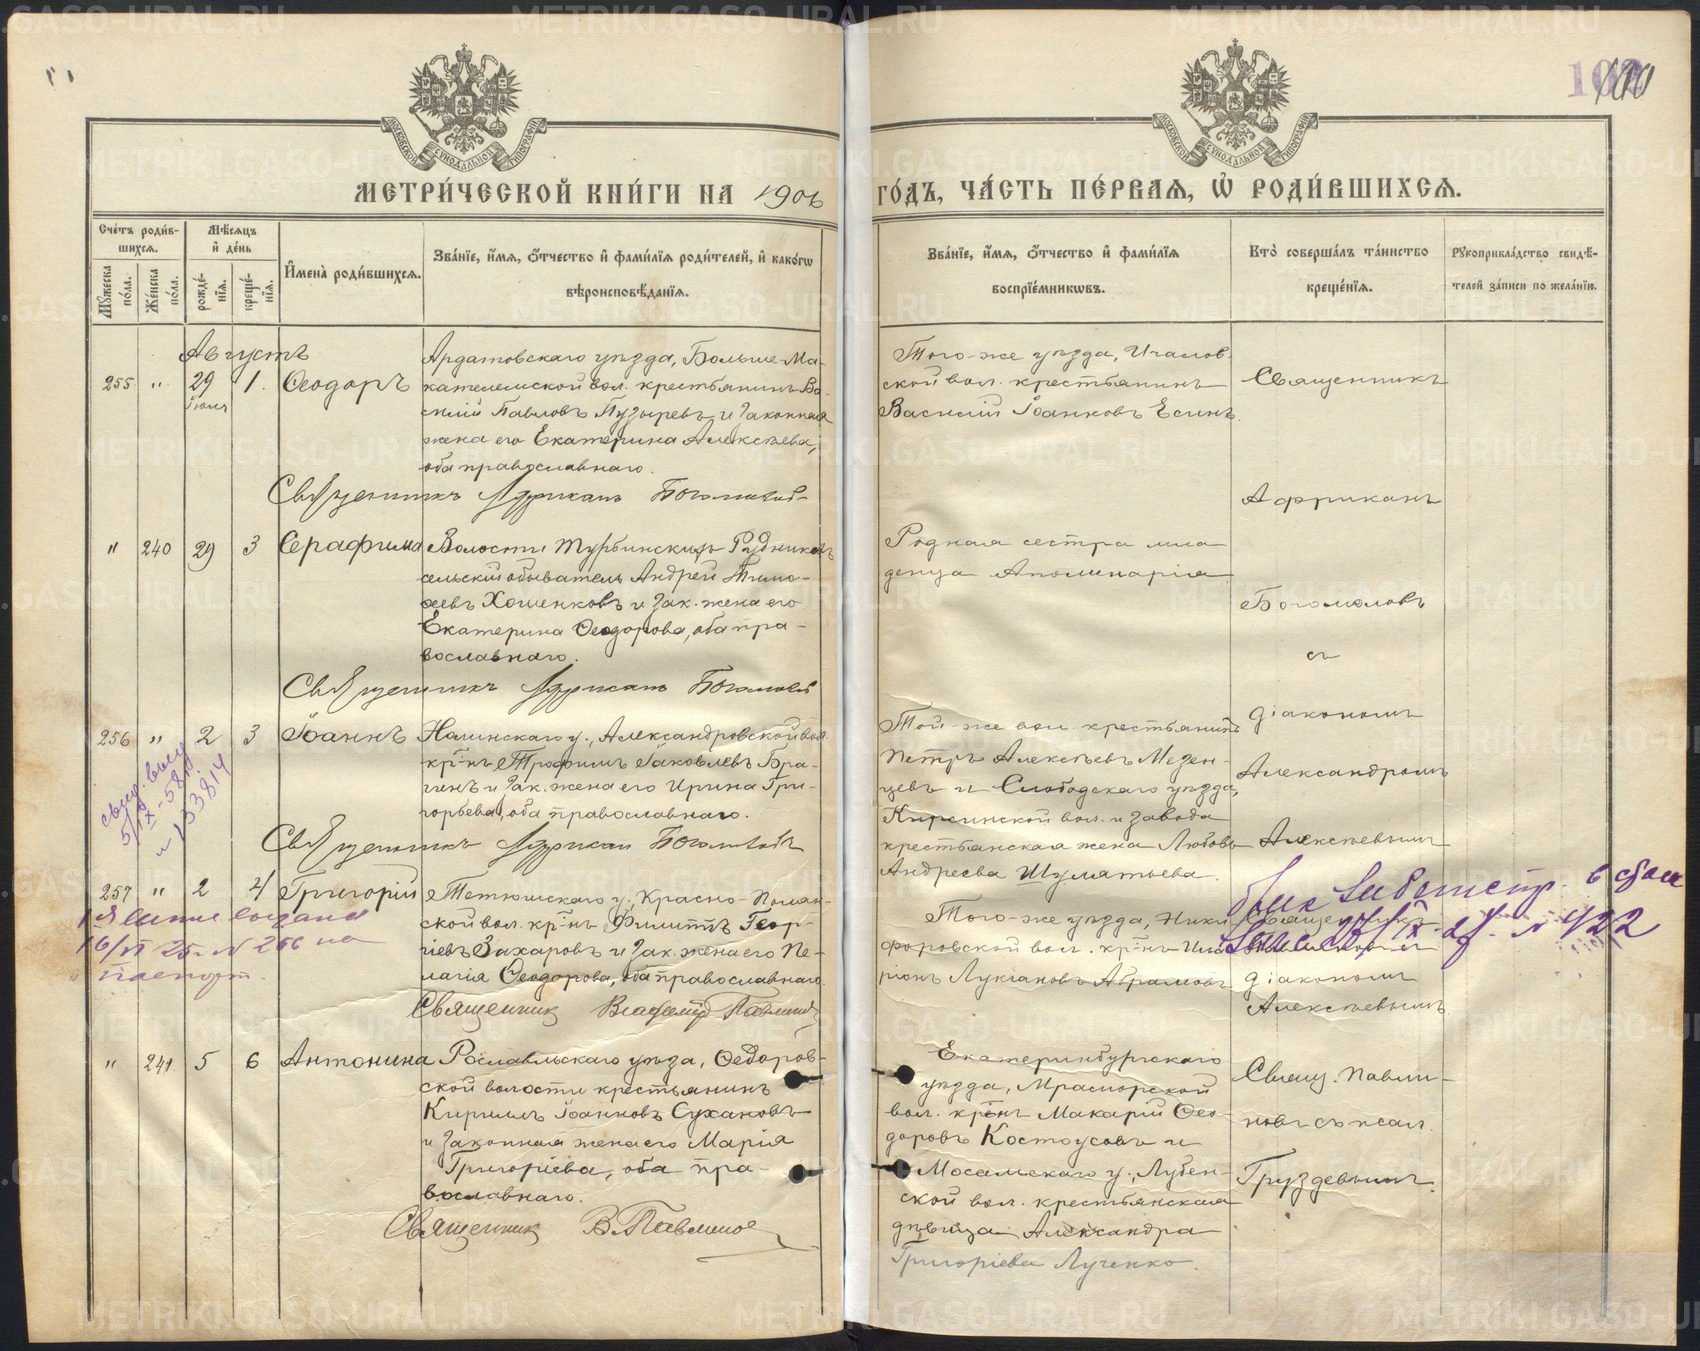 МЕТРИ́ЧЕСКОЙ КНИ́ГИ НА 1906
ГО́ДЪ, ЧА́СТЬ ПЕ́РВАѦ, Ѡ҆ РОДИ́ВШИХСѦ.
Сче́тъ роди́в-
шихсѧ.
Мѣ́сѧцъ
и҆ де́нь
Мꙋ́жеска
по́ла.
Же́нска
по́ла.
рожде́-
нїѧ.
креще́-
нїѧ.
И҆мена̀ роди́вшихсѧ.
Зва́нїе, и҆́мѧ, ѻ҆́тчество и҆ фами́лїѧ роди́телей, и҆ како́гѡ
вѣроисповѣ́данїѧ.
Зва́нїе, и҆́мѧ, ѻ҆́тчество и҆ фами́лїѧ
воспрїе́мникѡвъ.
Кто̀ соверша́лъ та́инство
креще́нїѧ.
Рꙋкоприкла́дство свидѣ́-
телей за́писи по жела́нїю.
Августъ
255 " 29 Іюля 1. Ѳеодоръ
Ардатовскаго уѣзда, Больше-Ма-
кателемской вол. крестьянинъ Ва-
силій Павловъ Пузыревъ и законная
жена его Екатерина Алексѣева,
оба православнаго.
Священникъ Африканъ Богомолов
Того-же уѣзда, Ичалов-
ской вол. крестьянинъ
Василій Іоанновъ Есинъ.
Священникъ
Африканъ
" 240 29 3 Серафима
Волости Турьинскихъ Рудниковъ
сельскій обыватель Андрей Тимо-
ѳеевъ Хошенковъ и зак. жена его
Екатерина Ѳеодорова, оба пра-
вославнаго.
Священникъ Африканъ Богомолов
Родная сестра мла
денца Аполинарія
Богомоловъ
съ
256 " 2 3 Іоаннъ
Нолинскаго у., Александровской вол.
кр-нъ Трофимъ Іаковлевъ Бра-
гинъ и зак. жена его Ирина Гри-
горьева, оба православнаго.
Священникъ Африкан Богомоловъ
Той-же вол. крестьянинъ
Петръ Алексѣевъ Мезен-
цевъ и Слободскаго уѣзда,
Кирсинской вол. и завода
крестьянская жена Любовь
Андреева Шулятьева.
діакономъ
Александромъ
Алексѣевымъ
257 " 2 4 Григорій
Тетюшскаго у., Красно-Полян-
ской вол. кр-нъ Филиппъ Геор-
гіевъ Захаровъ и зак. жена его Пе-
лагія Ѳеодорова, оба православнаго.
Священник Владимір Павлинов
Того-же уѣзда, Ники
форовской вол. кр-нъ Ила
ріонъ Лукіановъ Абрамовъ
Священникъ
діакономъ
Алексѣевымъ
" 241 5 6 Антонина
Рославльскаго уѣзда, Ѳедоров-
ской волости крестьянинъ
Кириллъ Іоанновъ Сухановъ
и законная жена его Марія
Григоріева, оба пра-
вославнаго.
Священник В. Павлинов
Екатеринбургскаго
уѣзда, Мраморской
вол. кр-нъ Макарій Ѳео-
доровъ Костоусовъ и
Мосальскаго у., Лубен-
ской вол. крестьянская
дѣвица Александра
Григоріева Лученко.
Свящ. Павли-
новъ съ псал.
Груздевымъ.
METRIKI.GASO-URAL.RU